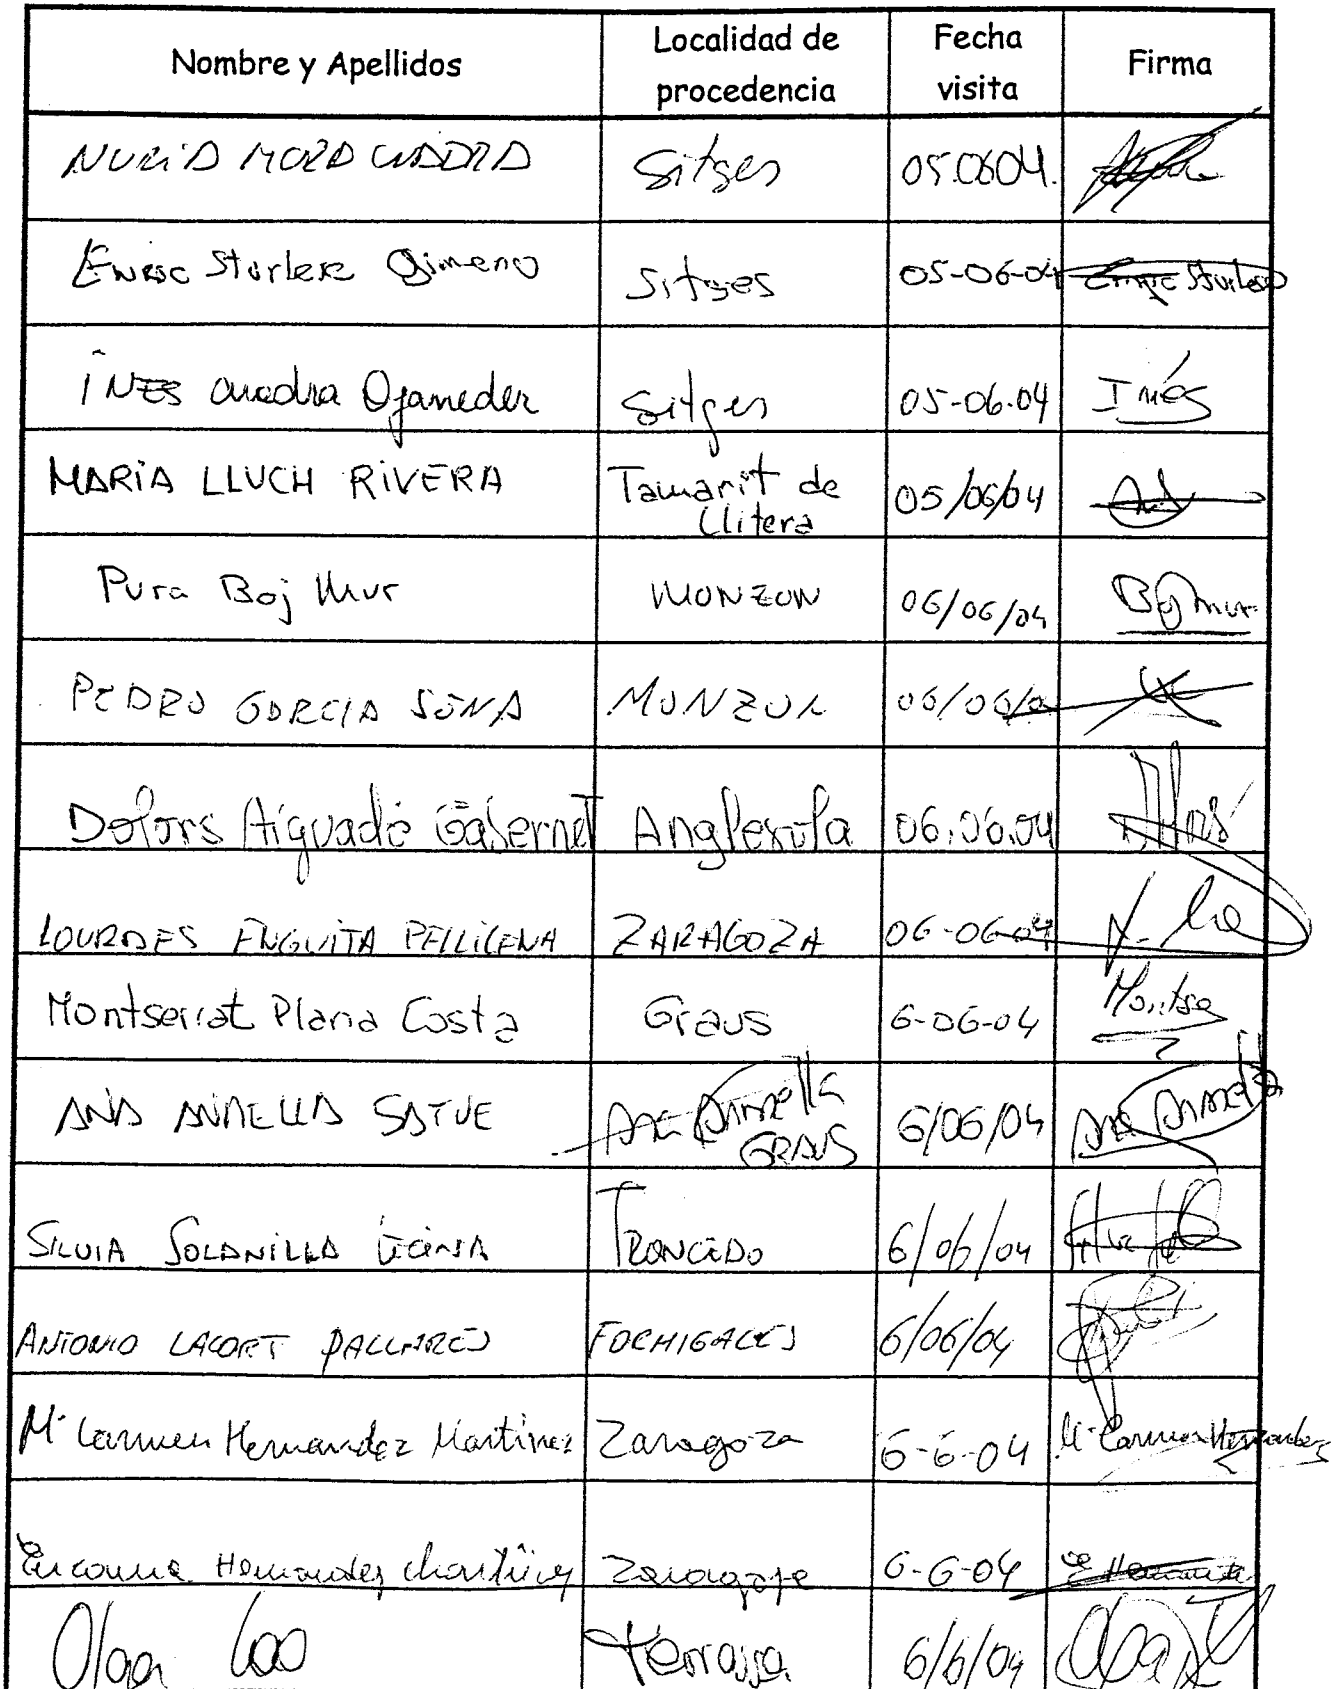 Nombre y Apellidos Localidad de procedencia Fecha visita Firma
NURIA MORA CUADRA Sitges 05.0604.
Enric Sturlese Gimeno Sitges 05-06-04 Enric Sturlese
INES Cuadra Sitges 05-06.04 Inés
MARIA LLUCH RIVERA Tamarit de Llitera 05/06/04
Pura Boj Mur MONZON 06/06/04 Boj Mur
PEDRO GARCIA MONZON 06/06/0
Dolors Aiguadé Gasernet Anglesola 06.06.04
LOURDES ENGUITA PELLICENA ZARAGOZA 06-06-04
Montserrat Plana Costa Graus 6-06-04 Montse
ANA SATUE GRAUS 6/06/04 Ana
SILVIA SOLANILLA TRONCEDO 6/06/04
ANTONIO LACORT PALLARES 6/06/04
Mª Carmen Hernandez Martinez Zaragoza 6-6-04 Mª Carmen Hernandez
Hernandez Zaragoza 6-6-04
Olga Terrassa 6/6/04 Olga